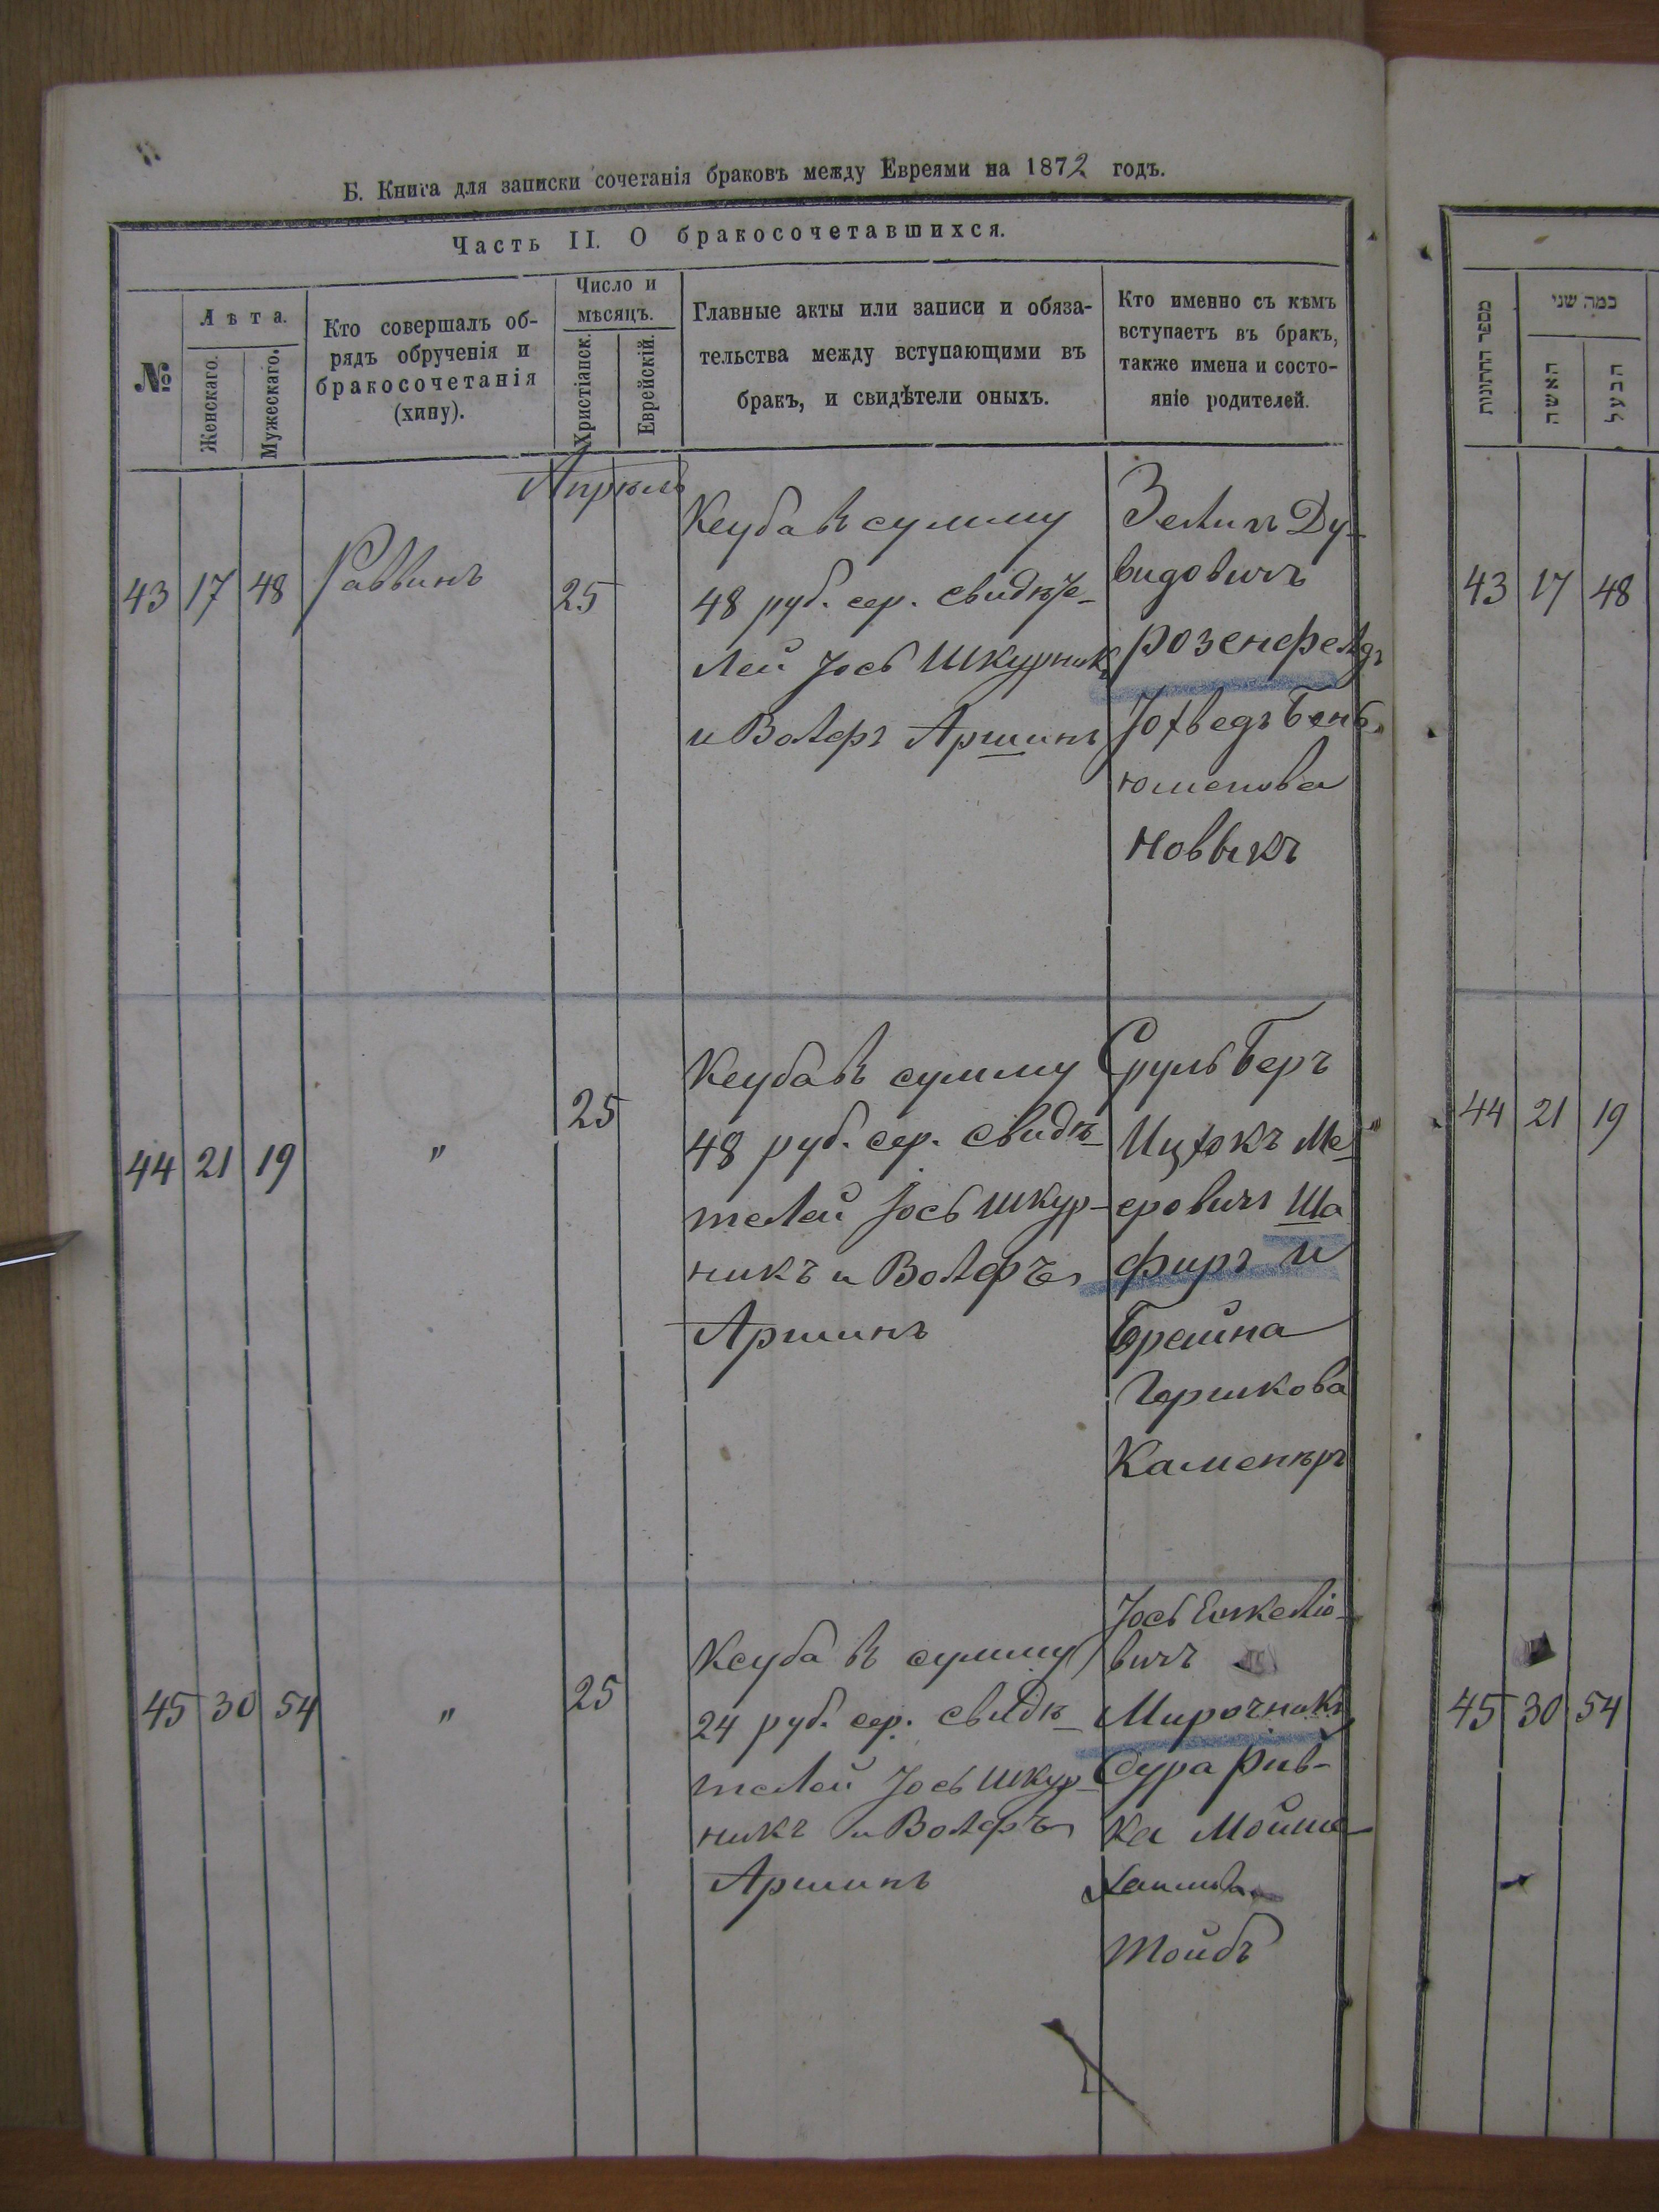 Б. Книга для записки сочетанія браковъ между Евреями на 1872 годъ.
Часть II. О бракосочетавшихся.
№
Лѣта.
Женскаго.
Мужескаго.
Кто совершалъ об-
рядъ обрученія и
бракосочетанія
(хипу).
Число и
мѣсяцъ.
Христіанск.
Еврейскій.
Главные акты или записи и обяза-
тельства между вступающими въ
бракъ, и свидѣтели оныхъ.
Кто именно съ кѣмъ
вступаетъ въ бракъ,
также имена и состо-
яніе родителей.
Апрѣль
43 17 48 Раввинъ 25
Ксуба въ сумму
48 руб. сер. свидѣте-
лей Іось Шкурникъ
и Волфъ Аршинъ
Зелигъ Ду-
видовичъ
Розенфелдъ
Іохведъ Бень-
юменова
Новыкъ
44 21 19 " 25
Ксуба въ сумму
48 руб. сер. свидѣ-
телей Іось Шкур-
никъ и Волфъ
Аршинъ
Сруль Беръ
Ицхокъ Ме-
еровичъ Ша
фиръ и
Брайна
Гершкова
Каменѣръ
45 30 54 " 25
Ксуба въ сумму
24 руб. сер. свидѣ-
телей Іось Шкур-
никъ и Волфъ
Аршинъ
Іось
вичъ
Мирочникъ
Сура Рив-
ка Мойше-
Хаимова
Тойбъ
מספר החתונות
כמה שני
האשה
הבעל
43 17 48
44 21 19
45 30 54